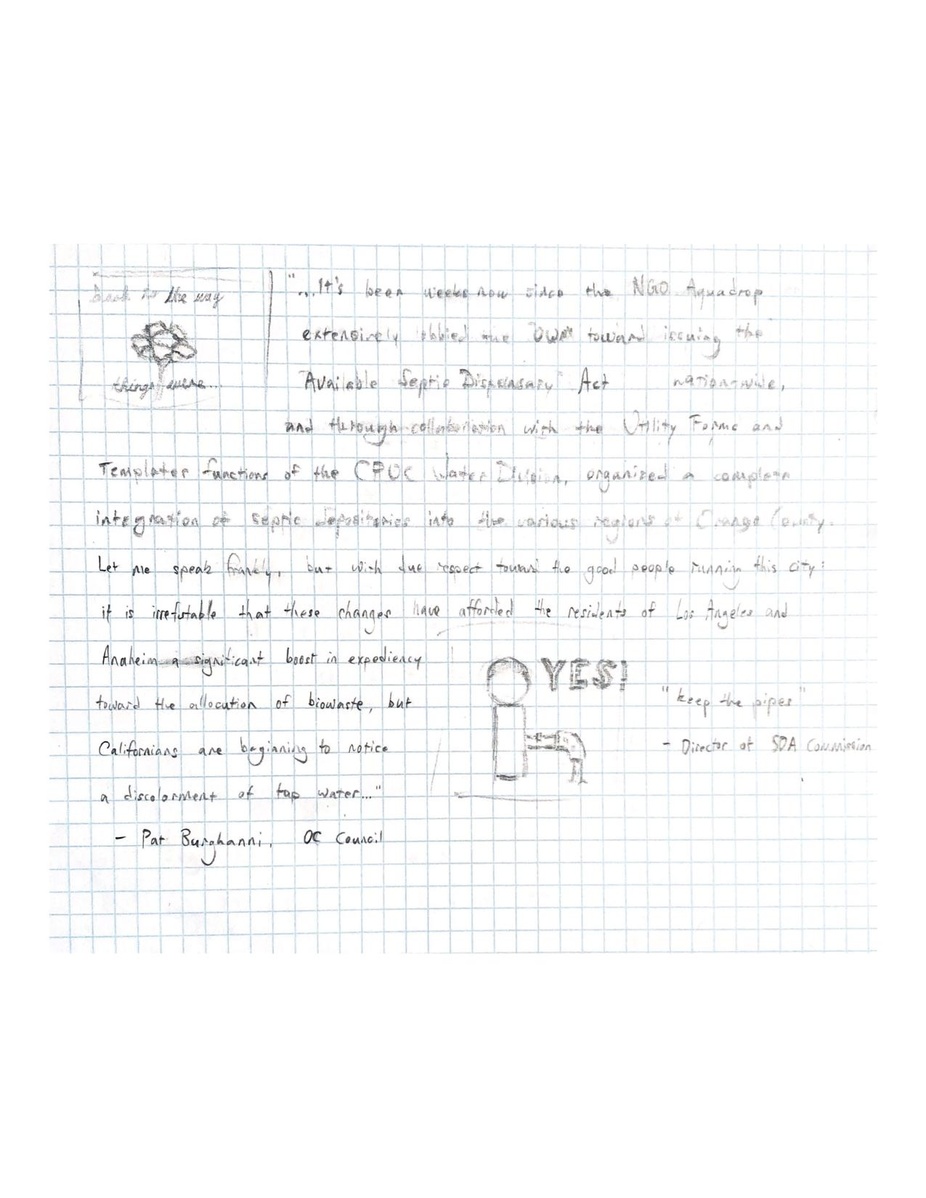 back to the way
things were...
"...It's been weeks now since the NGO Aquadrop
extensively lobbied the DWM toward issuing the
"Available Septic Dispensary" Act nation-wide,
and through collaboration with the Utility Forms and
Templates functions of the CPUC Water Division, organized a complete
integration of septic depositories into the various regions of Orange County.
Let me speak frankly, but with due respect toward the good people running this city:
it is irrefutable that these changes have afforded the residents of Los Angeles and
Anaheim a significant boost in expediency
toward the allocation of biowaste, but
Californians are beginning to notice
a discolorment of tap water..."
– Pat Burghanni, OC Council
YES!
"keep the pipes"
– Director of SDA Commission